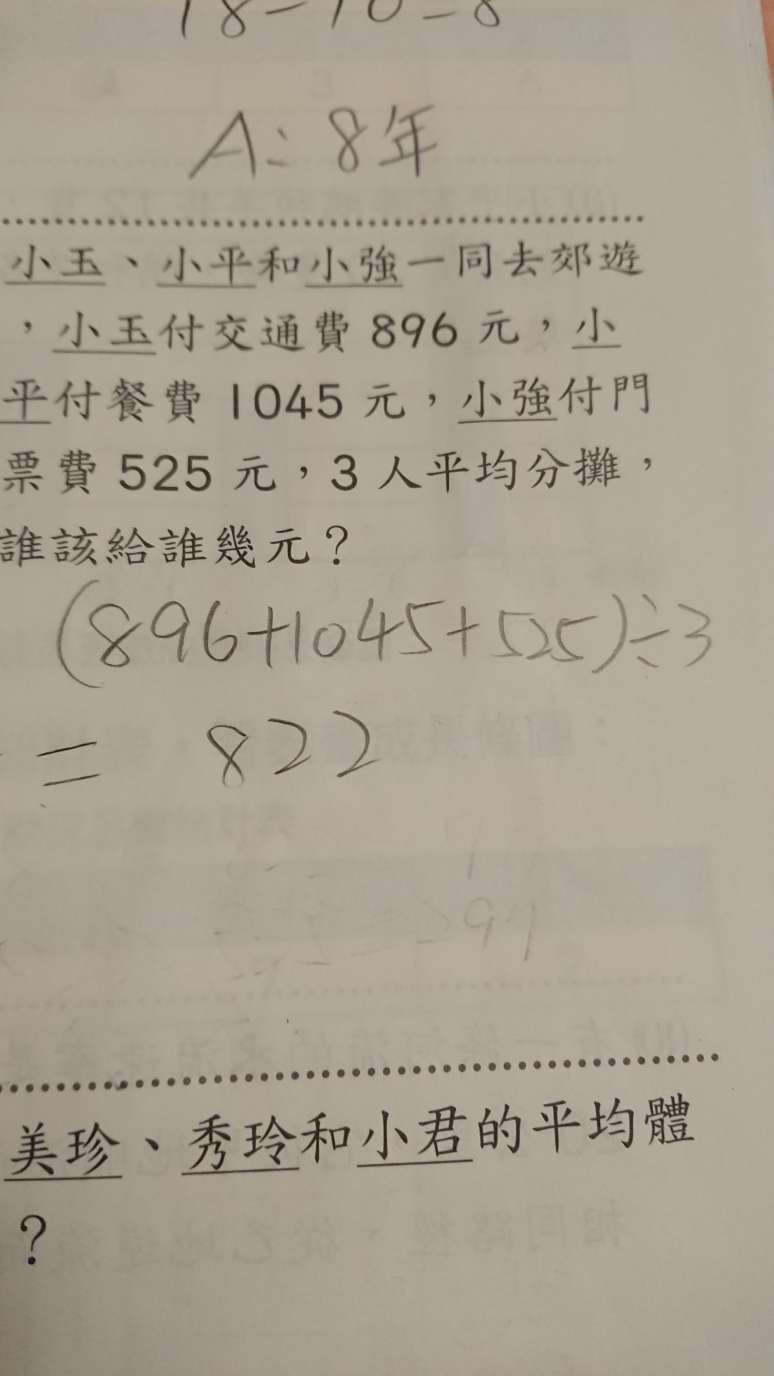 18-10=8
A:8年
小玉、小平和小強一同去郊遊
，小玉付交通費 896 元，小
平付餐費 1045 元，小強付門
票費 525 元，3 人平均分攤，
誰該給誰幾元？
(896+1045+525)÷3
= 822
美珍、秀玲和小君的平均體
？